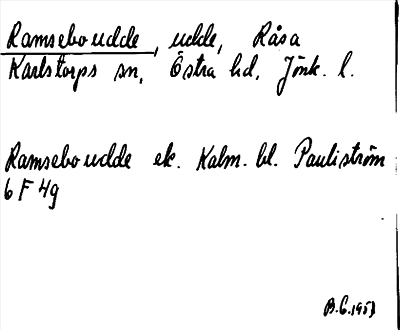 Ramsebo udde, udde, Råsa
Karlstorps sn, Östra hd, Jönk. l.
Ramsebo udde ek. Kalm. bl. Pauliström
6 F 4g